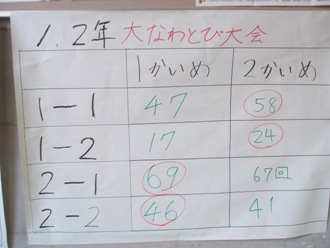 1.2年 大なわとび大会
1かいめ 2かいめ
1-1 47 58
1-2 17 24
2-1 69 67回
2-2 46 41